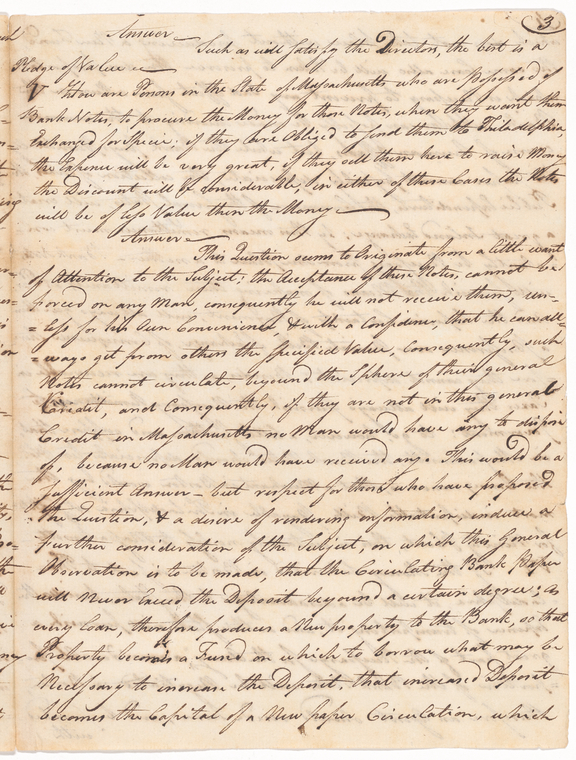 3
Answer — Such as will satisfy the Directors, the best is a
Pledge of Value &c —
V How are Persons in the State of Massachusetts who are possessed of
Bank Notes, to procure the Money for those Notes, when they want them
Exchanged for Specie; if they are Obliged to send them to Philadelphia,
the Expence will be very great, if they sell them here to raise Money
the Discount will be considerable, in either of these Cases the Notes
will be of less Value than the Money —
Answer —
This Question seems to Originate from a little want
of Attention to the Subject; the Acceptance of these Notes, cannot be
forced on any Man, consequently he will not receive them, un-
=less for his Own Convenience, & with a Confidence, that he can all=
=ways get from others the specified Value, Consequently, such
Notes cannot circulate, beyound the Sphere of their general
Credit, and Consequently, if they are not in this general
Credit in Massachusetts no Man would have any to dispose
of, because no Man would have received any. This would be a
sufficient Answer — but respect for those who have proposed
the Question, & a desire of rendering information, induce a
further consideration of the Subject, on which this General
Observation is to be made, that the Circulating Bank Paper
will Never Exceed the Deposit beyound a certain degree; as
every Loan, therefore produces a New property to the Bank, so that
Property becomes a Fund on which to borrow what may be
Necessary to increase the Deposit, that increased Deposit
becomes the Capital of a New paper Circulation, which